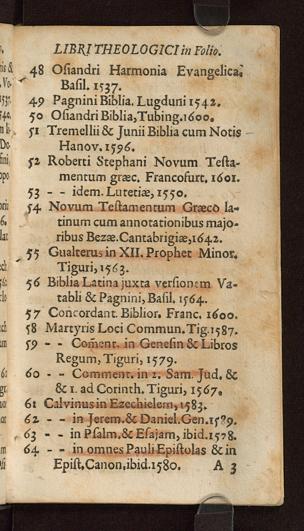 LIBRI THEOLOGICI in Folio.
48 Osiandri Harmonia Evangelica.
Basil. 1537.
49 Pagnini Biblia. Lugduni 1542.
50 Osiandri Biblia, Tubing. 1600.
51 Tremellii & Junii Biblia cum Notis
Hanov. 1596.
52 Roberti Stephani Novum Testa-
mentum græc. Francofurt. 1601.
53 - - idem. Lutetiæ, 1550.
54 Novum Testamentum Græco la-
tinum cum annotationibus majo-
ribus Bezæ. Cantabrigiæ, 1642.
55 Gualterus in XII. Prophet Minor.
Tiguri, 1563.
56 Biblia Latina juxta versionem Va-
tabli & Pagnini, Basil. 1564.
57 Concordant. Biblior. Franc. 1600.
58 Martyris Loci Commun. Tig. 1587.
59 - - Com̃ent. in Genesin & Libros
Regum, Tiguri, 1579.
60 - - Comment. in 2. Sam. Jud, &
& 1. ad Corinth. Tiguri, 1567.
61 Calvinus in Ezechielem, 1583.
62 - - in Jerem. & Daniel. Gen. 1589.
63 - - in Psalm. & Esajam, ibid. 1578.
64 - - in omnes Pauli Epistolas & in
Epist. Canon, ibid. 1580. A 3